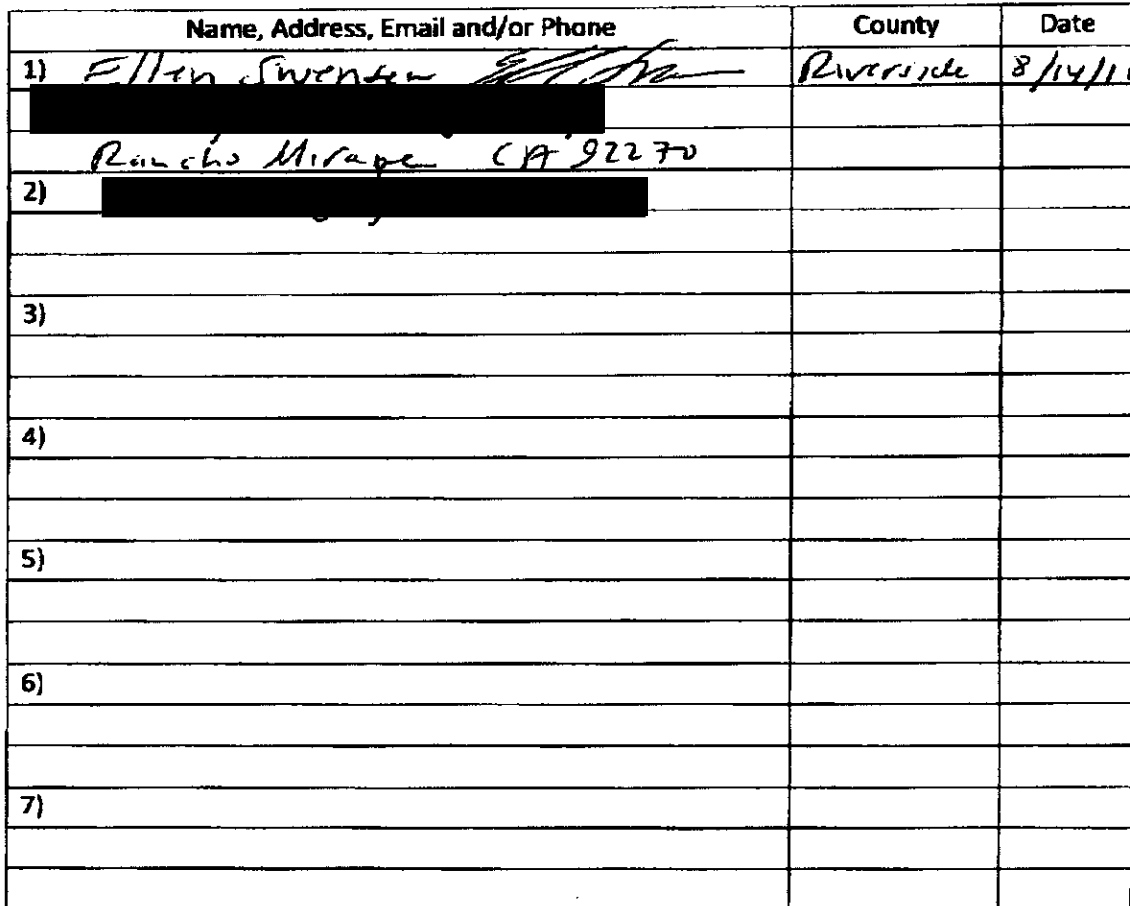 Name, Address, Email and/or Phone County Date
1) Ellen Swensen Riverside 8/14/1
Rancho Mirage CA 92270
2)
3)
4)
5)
6)
7)